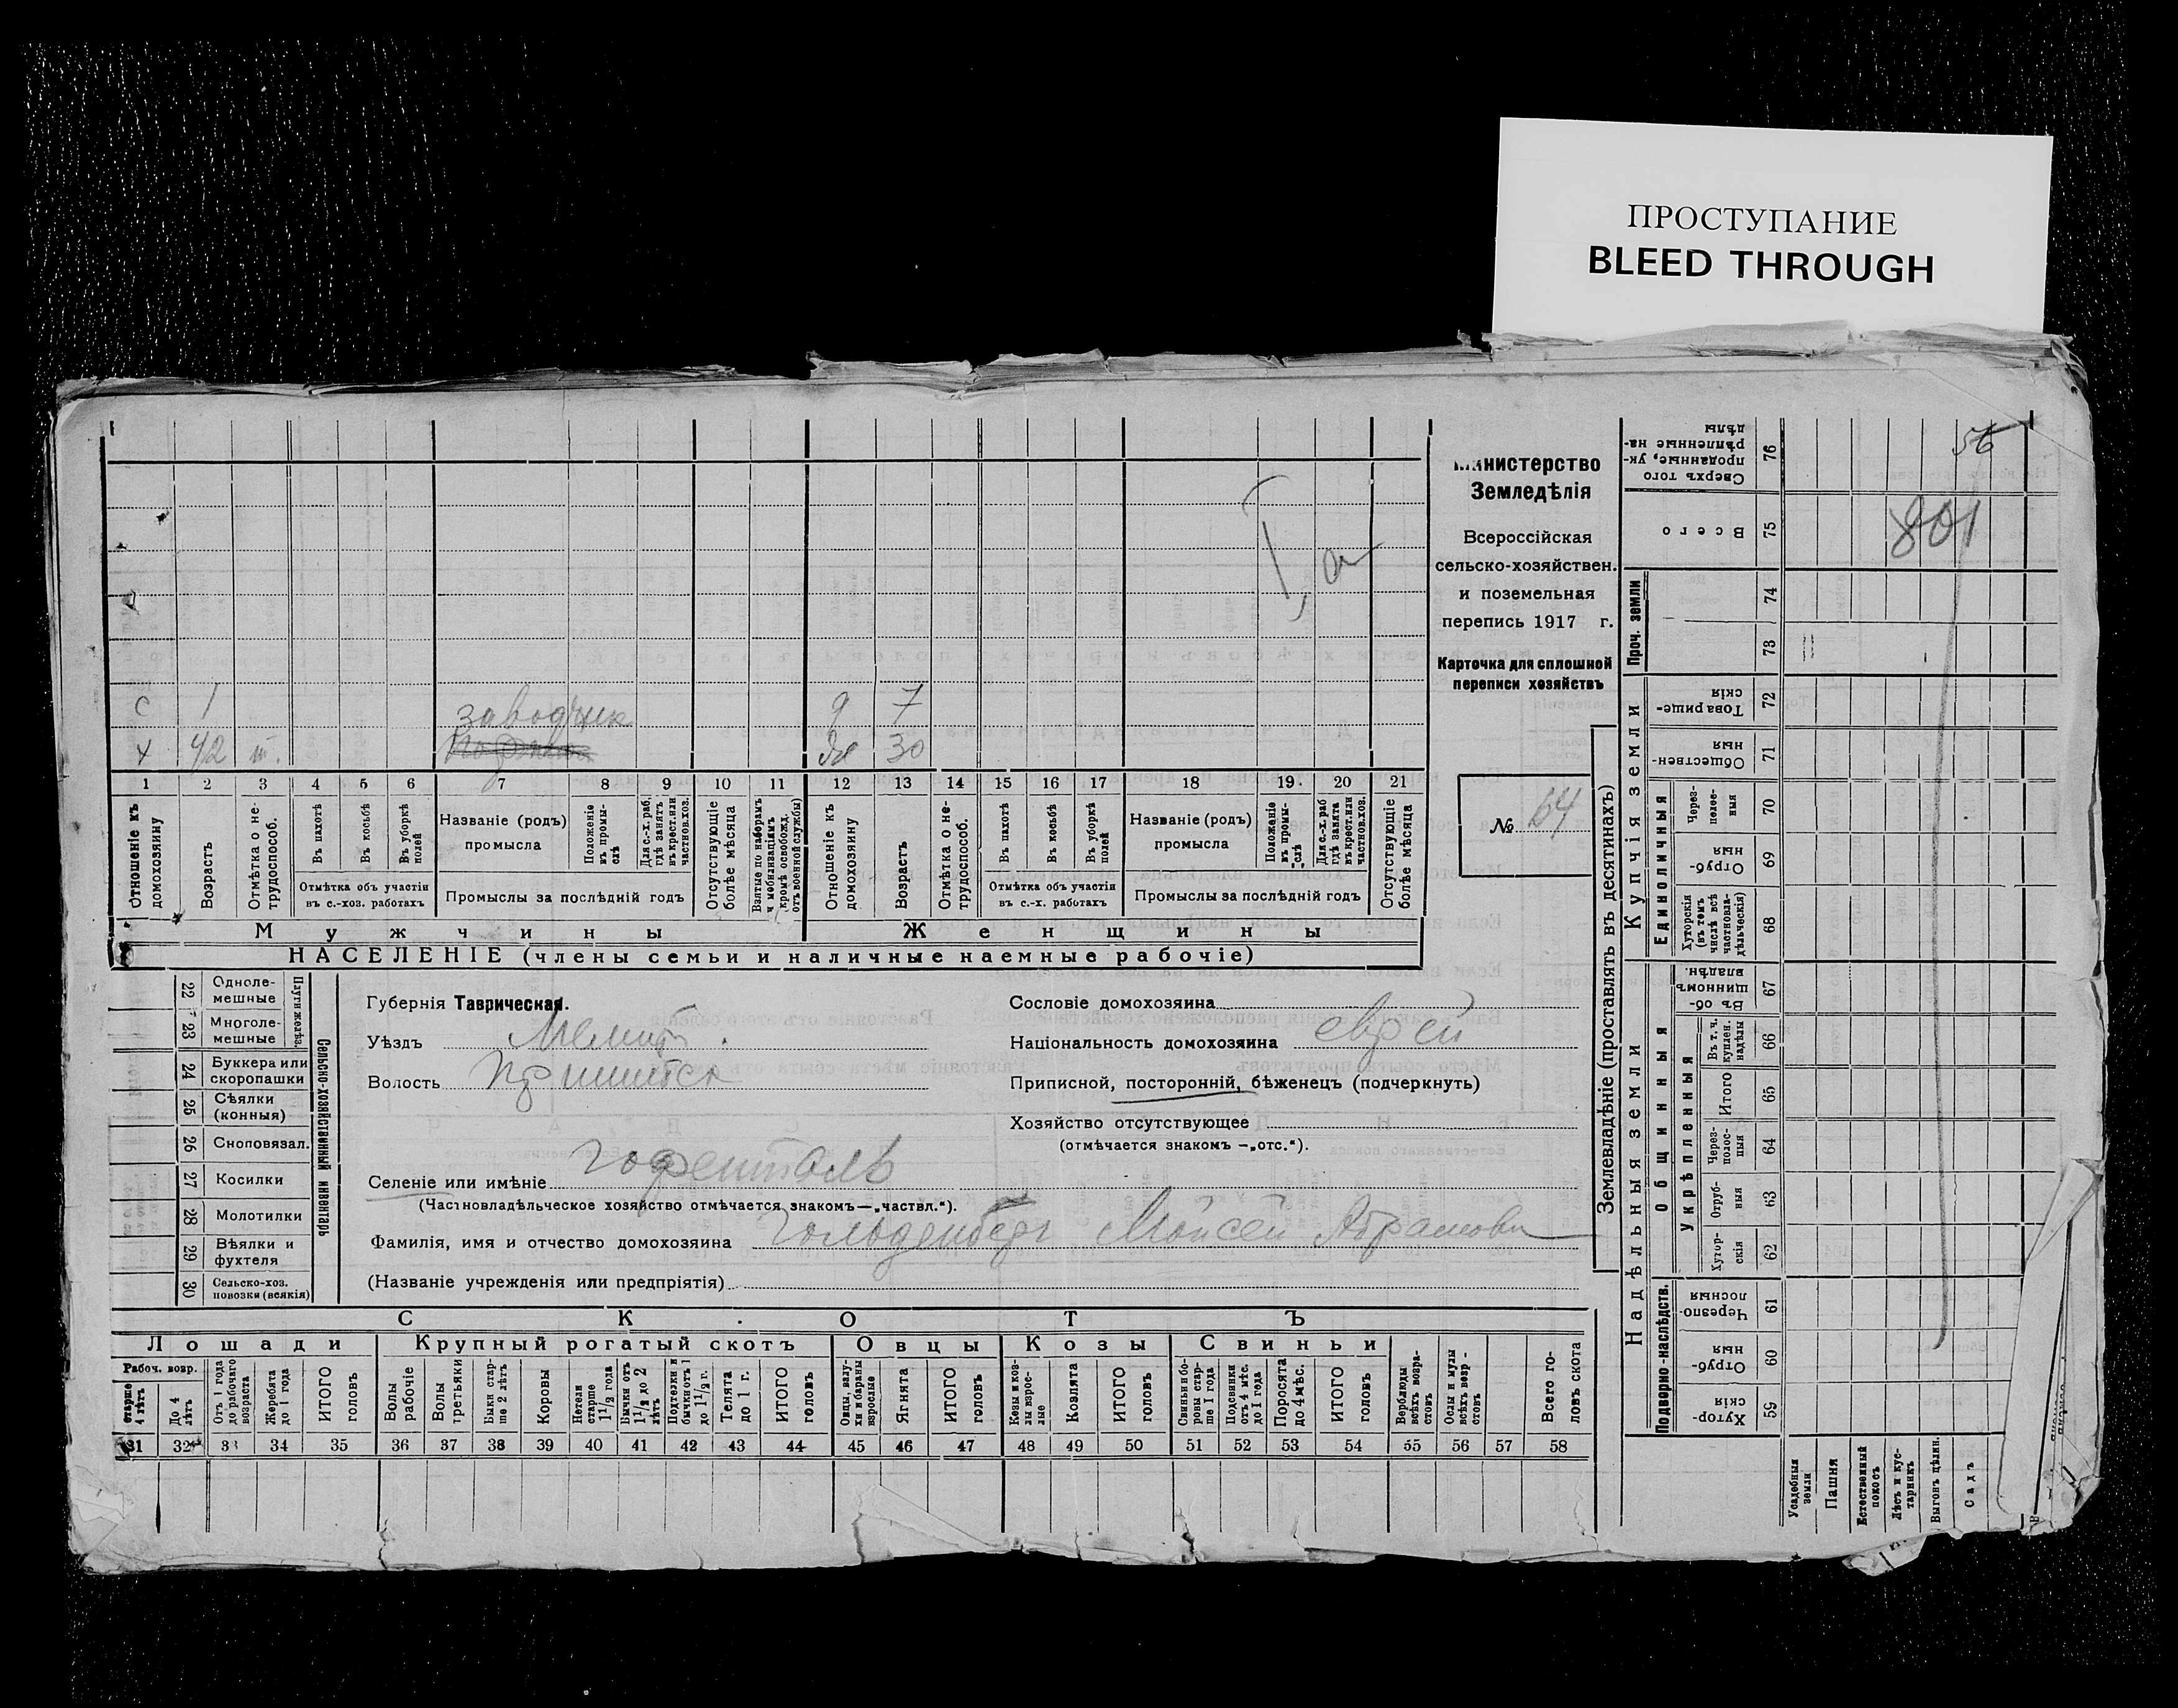 ПРОСТУПАНИЕ
BLEED THROUGH
Министерство
Земледѣлія
Всероссійская
сельско-хозяйствен.
и поземельная
перепись 1917 г.
Карточка для сплошной
переписи хозяйствъ
№ 64
с 1 заводчик д 7
х 42 ж 30
1 2 3 4 5 6 7 8 9 10 11 12 13 14 15 16 17 18 19 20 21
Отношеніе къ домохозяину
Возрастъ
Отмѣтка о нетрудоспособ.
Въ пахотѣ
Въ косьбѣ
Въ уборкѣ полей
Отмѣтка объ участіи въ с.-хоз. работахъ
Названіе (родъ) промысла
Положеніе въ промыслѣ
Для с.-х. раб. гдѣ занятъ въ крест. или частнов. хоз.
Промыслы за послѣдній годъ
Отсутствующіе болѣе мѣсяца
Взятые по наборамъ и мобилизаціямъ кромѣ освобожд. отъ военной службы)
Отношеніе къ домохозяину
Возрастъ
Отмѣтка о нетрудоспособ.
Въ пахотѣ
Въ косьбѣ
Въ уборкѣ полей
Отмѣтка объ участіи въ с.-х. работахъ
Названіе (родъ) промысла
Положеніе въ промыслѣ
Для с.-х. раб гдѣ занята въ крест. или частнов. хоз.
Промыслы за послѣдній годъ
Отсутствующіе болѣе мѣсяца
Мужчины Женщины
НАСЕЛЕНІЕ (члены семьи и наличные наемные рабочіе)
Сельско-хозяйственный инвентарь
Плуги желѣз.
22 Однолемешные
23 Многолемешные
24 Буккера или скоропашки
25 Сѣялки (конныя)
26 Сноповязал.
27 Косилки
28 Молотилки
29 Вѣялки и фухтеля
30 Сельско-хоз. повозки (всякія)
Губернія Таврическая.
Уѣздъ Мелит.
Волость
Селеніе или имѣніе Гофенталь
(Частновладѣльческое хозяйство отмѣчается знакомъ—„частвл.“).
Фамилія, имя и отчество домохозяина Гольденберг Мойсей Абрамови
(Названіе учрежденія или предпріятія)
Сословіе домохозяина
Національность домохозяина еврей
Приписной, посторонній, бѣженецъ (подчеркнуть)
Хозяйство отсутствующее
(отмѣчается знакомъ —„отс.“).
СКОТЪ
Лошади Крупный рогатый скотъ Овцы Козы Свиньи
Рабоч. возр.
старше 4 лѣтъ
До 4 лѣтъ
Отъ 1 года до рабочаго возраста
Жеребята до 1 года
ИТОГО головъ
Волы рабочіе
Волы третьяки
Быки старше 2 лѣтъ
Коровы
Нетели старше 1 1/2 года
Бычки отъ 1 1/2 до 2 лѣтъ
Подтелки и бычки отъ 1 до 1 1/2 г.
Телята до 1 г.
ИТОГО головъ
Овцы, валухи и бараны взрослые
Ягнята
ИТОГО головъ
Козы и козлы взрослые
Козлята
ИТОГО головъ
Свиньи и боровы старше 1 года
Подсвинки отъ 4 мѣс. до 1 года
Поросята до 4 мѣс.
ИТОГО головъ
Верблюды всѣхъ возрастовъ
Ослы и мулы всѣхъ возр-стовъ
Всего головъ скота
31 32 33 34 35 36 37 38 39 40 41 42 43 44 45 46 47 48 49 50 51 52 53 54 55 56 57 58
Землевладѣніе (проставлять въ десятинахъ)
Купчія земли
Надѣльныя земли
Сверхъ того проданные, укрѣпленные надѣлы 76 56
Всего 75 801
Проч. земли 74 73
Товарищескія 72
Общественныя 71
Единоличныя
Черезполосныя 70
Отрубныя 69
Хуторскія (въ томъ числѣ всѣ частновладѣльческія) 68
Общинныя
Въ общинномъ владѣн. 67
Укрѣпленныя
Въ т. ч. куплен. надѣлы 66
Итого 65
Черезполосныя 64
Отрубныя 63
Хуторскія 62
Подворно-наслѣдств.
Черезполосныя 61
Отрубныя 60
Хуторскія 59
Усадебныя земли
Пашня
Естественный покосъ
Лѣсъ и кустарникъ
Выгонъ цѣлин.
Садъ